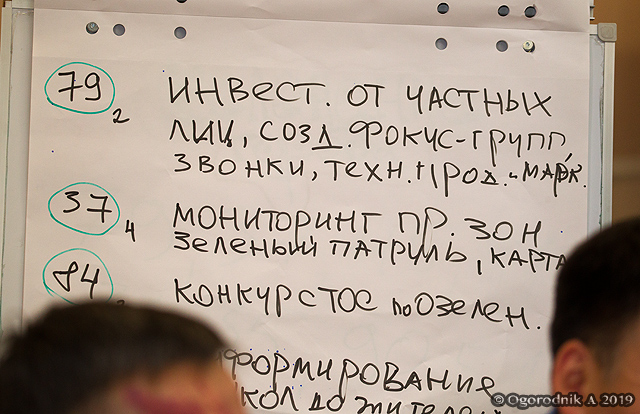 79
2
ИНВЕСТ. ОТ ЧАСТНЫХ
ЛИЦ, СОЗД. ФОКУС-ГРУПП,
ЗВОНКИ, ТЕХН. ПРОД. - МАРК.
37
4
МОНИТОРИНГ ПР. ЗОН
ЗЕЛЕНЫЙ ПАТРУЛЬ, КАРТА
84
КОНКУРС ТОС по ОЗЕЛЕН.
ФОРМИРОВАНИЕ
ДО
© Ogorodnik A 2019